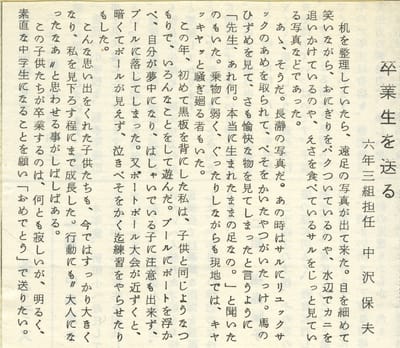 卒業生を送る
六年三組担任　中沢保夫
　机を整理していたら、遠足の写真が出て来た。目を細めて
笑いながら、おにぎりをパクついているのや、水辺でカニを
追いかけているのや、えさを食べているサルをじっと見てい
る写真などであった。
　あゝ、そうだ。長瀞の写真だ。あの時はサルにリュックサ
ックのあめを取られて、べそをかいたやつがいたっけ。馬の
ひずめを見て、さも愉快な物を見てしまったと言うように
「先生、あれ何。本当に生まれたままの足なの。」と聞いた
のもいた。乗物に弱く、ぐったりしながらも現地では、キャ
ッキャッと騒ぎ廻る者もいた。
　この年、初めて黒板を背にした私は、子供と同じようなつ
もりで、いろんなことをして遊んだ。プールにボートを浮か
べ、自分が夢中になり、はしゃいでいる子に注意も出来ず、
プールに落してしまった。又ポートボール大会が近ずくと、
暗くてボールが見えず、泣きべそをかく迄練習をやらせたり
もした。
　こんな思い出をくれた子供たちも、今ではすっかり大きく
なり、私を見下ろす程にまで成長した。行動にも〝大人にな
ったなあ〟と思わせる事がしばしばある。
　この子供たちが卒業するのは、何とも寂しいが、明るく、
素直な中学生になることを願い「おめでとう」で送りたい。